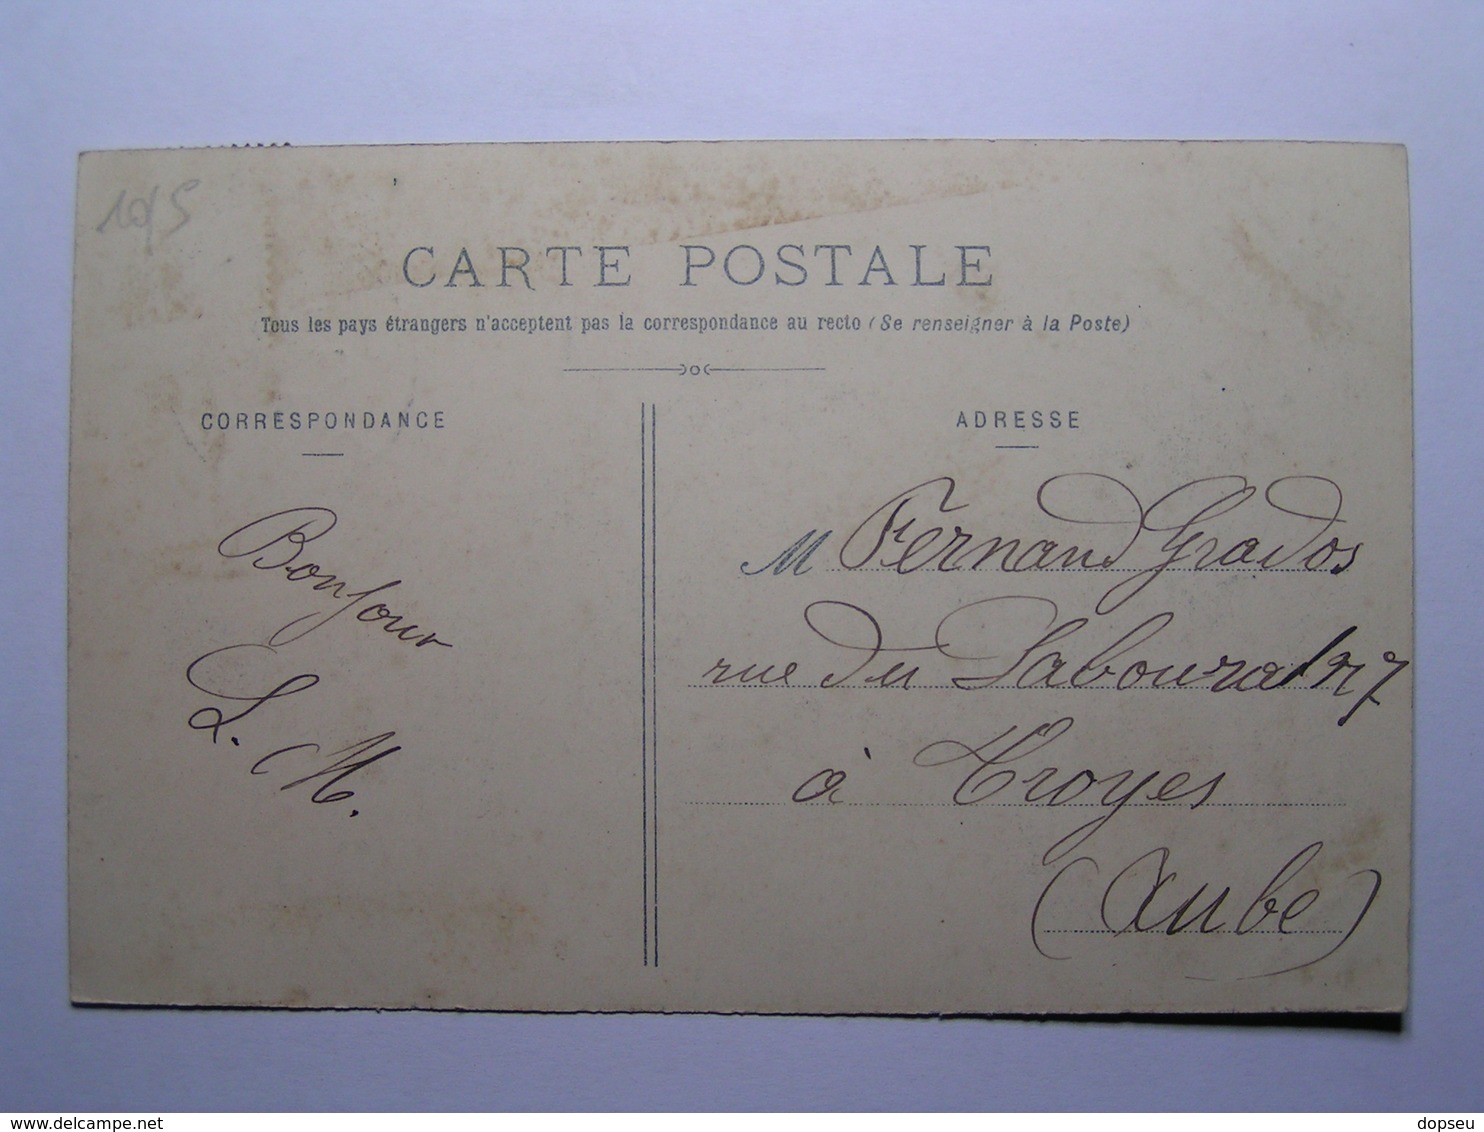 CARTE POSTALE
Tous les pays étrangers n'acceptent pas la correspondance au recto (Se renseigner à la Poste)
CORRESPONDANCE
Bonjour
L. M.
ADRESSE
M Fernand Grados
rue du Labourat 7
à Troyes
(Aube)
delcampe.net
dopseu